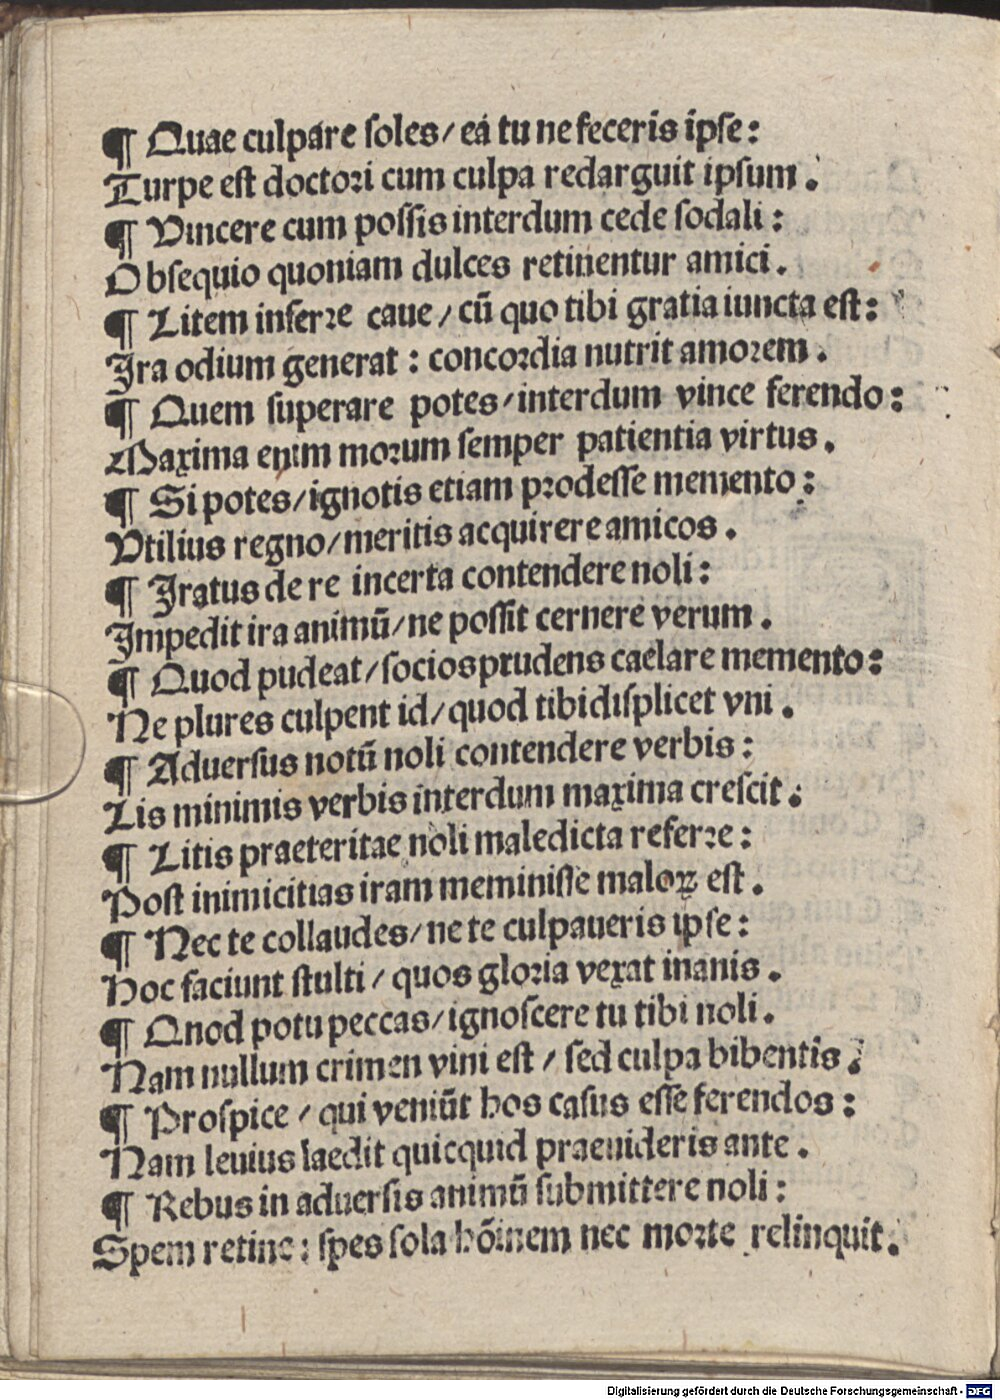 ¶ Quae culpare soles/ ea tu ne feceris ipse:
Turpe est doctori cum culpa redarguit ipsum.
¶ Vincere cum possis interdum cede sodali:
Obsequio quoniam dulces retinentur amici.
¶ Litem inferre caue/ cū quo tibi gratia iuncta est:
Ira odium generat: concordia nutrit amorem.
¶ Quem superare potes/ interdum vince ferendo:
Maxima enim morum semper patientia virtus.
¶ Si potes/ ignotis etiam prodesse memento:
Vtilius regno/ meritis acquirere amicos.
¶ Iratus de re incerta contendere noli:
Impedit ira animū/ ne possit cernere verum.
¶ Quod pudeat/ socios prudens caelare memento:
Ne plures culpent id/ quod tibi displicet vni.
¶ Aduersus notū noli contendere verbis:
Lis minimis verbis interdum maxima crescit.
¶ Litis praeteritae noli maledicta referre:
Post inimicitias iram meminisse maloꝝ est.
¶ Nec te collaudes/ ne te culpaueris ipse:
Hoc faciunt stulti/ quos gloria vexat inanis.
¶ Qnod potu peccas/ ignoscere tu tibi noli.
Nam nullum crimen vini est/ sed culpa bibentis.
¶ Prospice/ qui veniūt hos casus esse ferendos:
Nam leuius laedit quicquid praeuideris ante.
¶ Rebus in aduersis animū submittere noli:
Spem retine: spes sola hōinem nec morte relinquit.
Digitalisierung gefördert durch die Deutsche Forschungsgemeinschaft - DFG